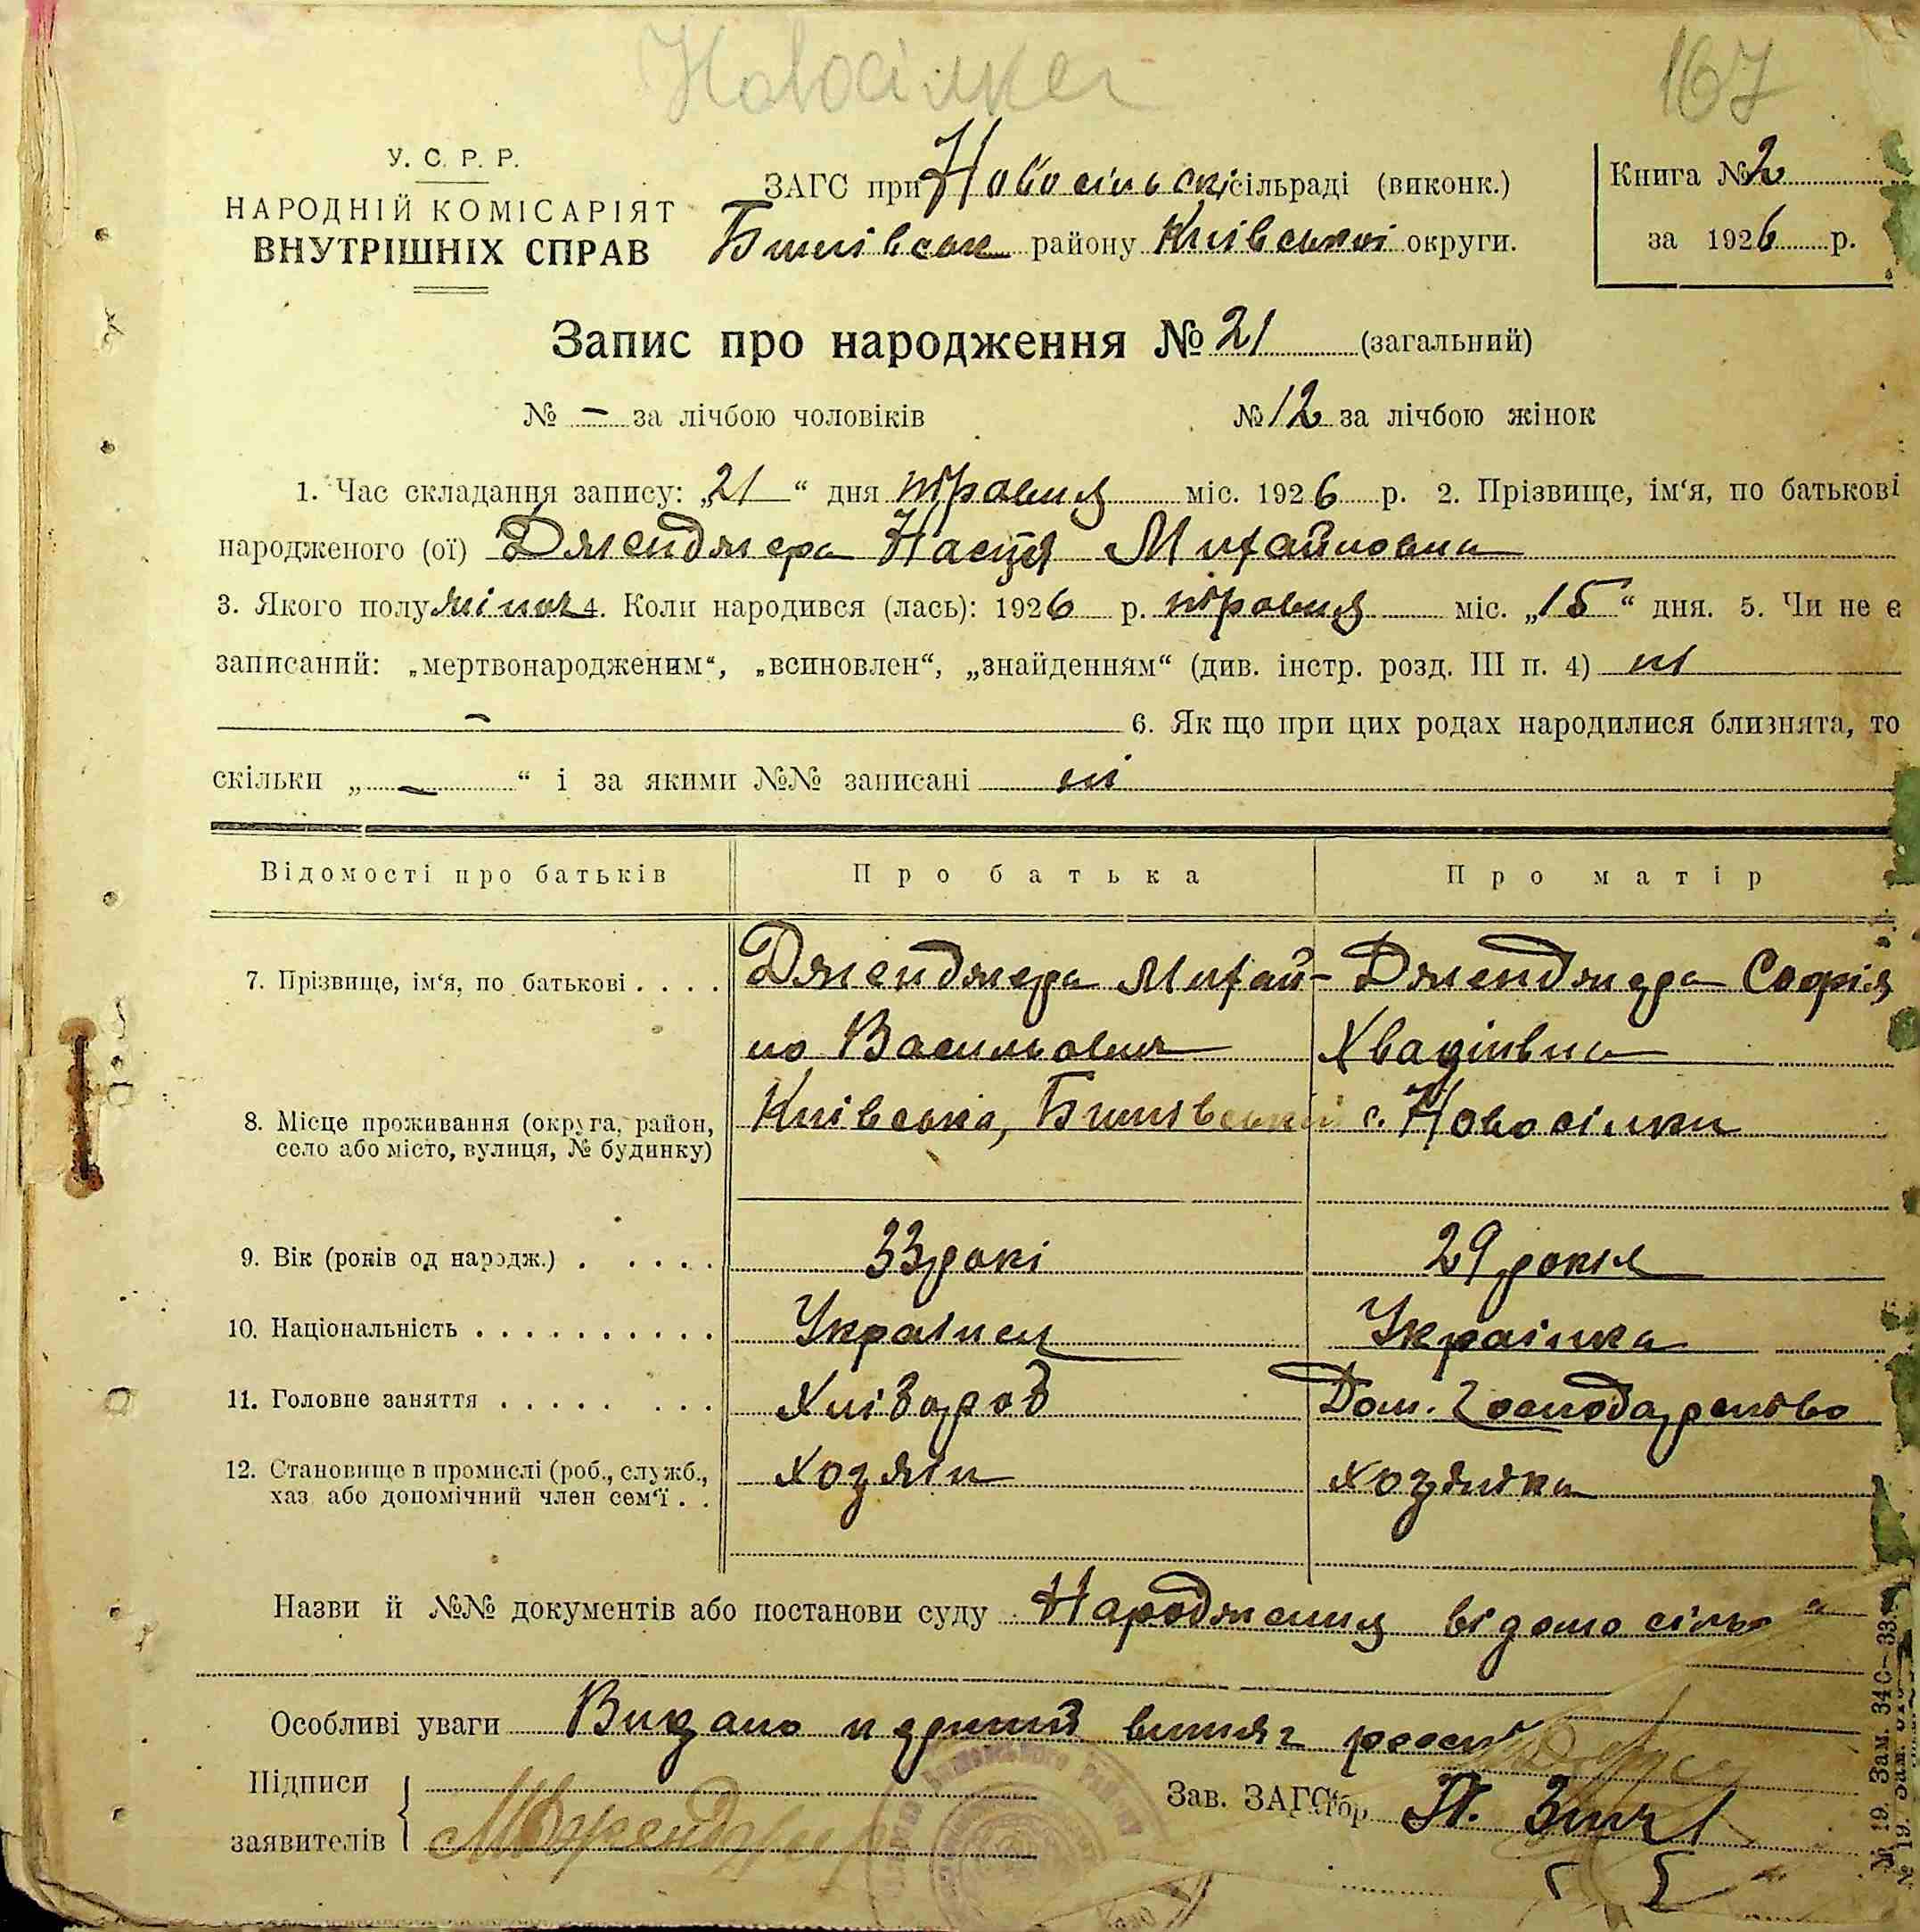 Новосілки
167
У. С. Р. Р.
НАРОДНІЙ КОМІСАРІЯТ
ВНУТРІШНІХ СПРАВ
ЗАГС при Новосільскі сільраді (виконк.)
Бишівськ району Київської округи.
Книга № 2
за 1926 р.
Запис про народження № 21 (загальний)
№ – за лічбою чоловіків № 12 за лічбою жінок
1. Час складання запису: „21“ дня травня міс. 1926 р. 2. Прізвище, ім‘я, по батькові
народженого (ої) Дженджера Настя Михайловна
3. Якого полу жіноч 4. Коли народився (лась): 1926 р. травня міс. „15“ дня. 5. Чи не є
записаний: „мертвонародженим“, „всиновлен“, „знайденням“ (див. інстр. розд. III п. 4) ні
– 6. Як що при цих родах народилися близнята, то
скільки „ – “ і за якими №№ записані ні
Відомості про батьків Про батька Про матір
7. Прізвище, ім‘я, по батькові . . . . Дженджера Михай- Дженджера Софія
ло Васильович
8. Місце проживання (округа, район, Київська, Бишівський с. Новосілки
село або місто, вулиця, № будинку)
9. Вік (років од народж.) . . . . . 33 рокі 29 років
10. Національність . . . . . . . . . . Українец Українка
11. Головне заняття . . . . . . . . Хлібороб Дом. Господарство
12. Становище в промислі (роб., служб., хозяін хозяйка
хаз. або допомічний член сем‘ї . .
Назви й №№ документів або постанови суду Народження відомо сіль
Особливі уваги Видано
Підписи
заявителів
Зав. ЗАГС‘
№ 19. Зам. 340—33.